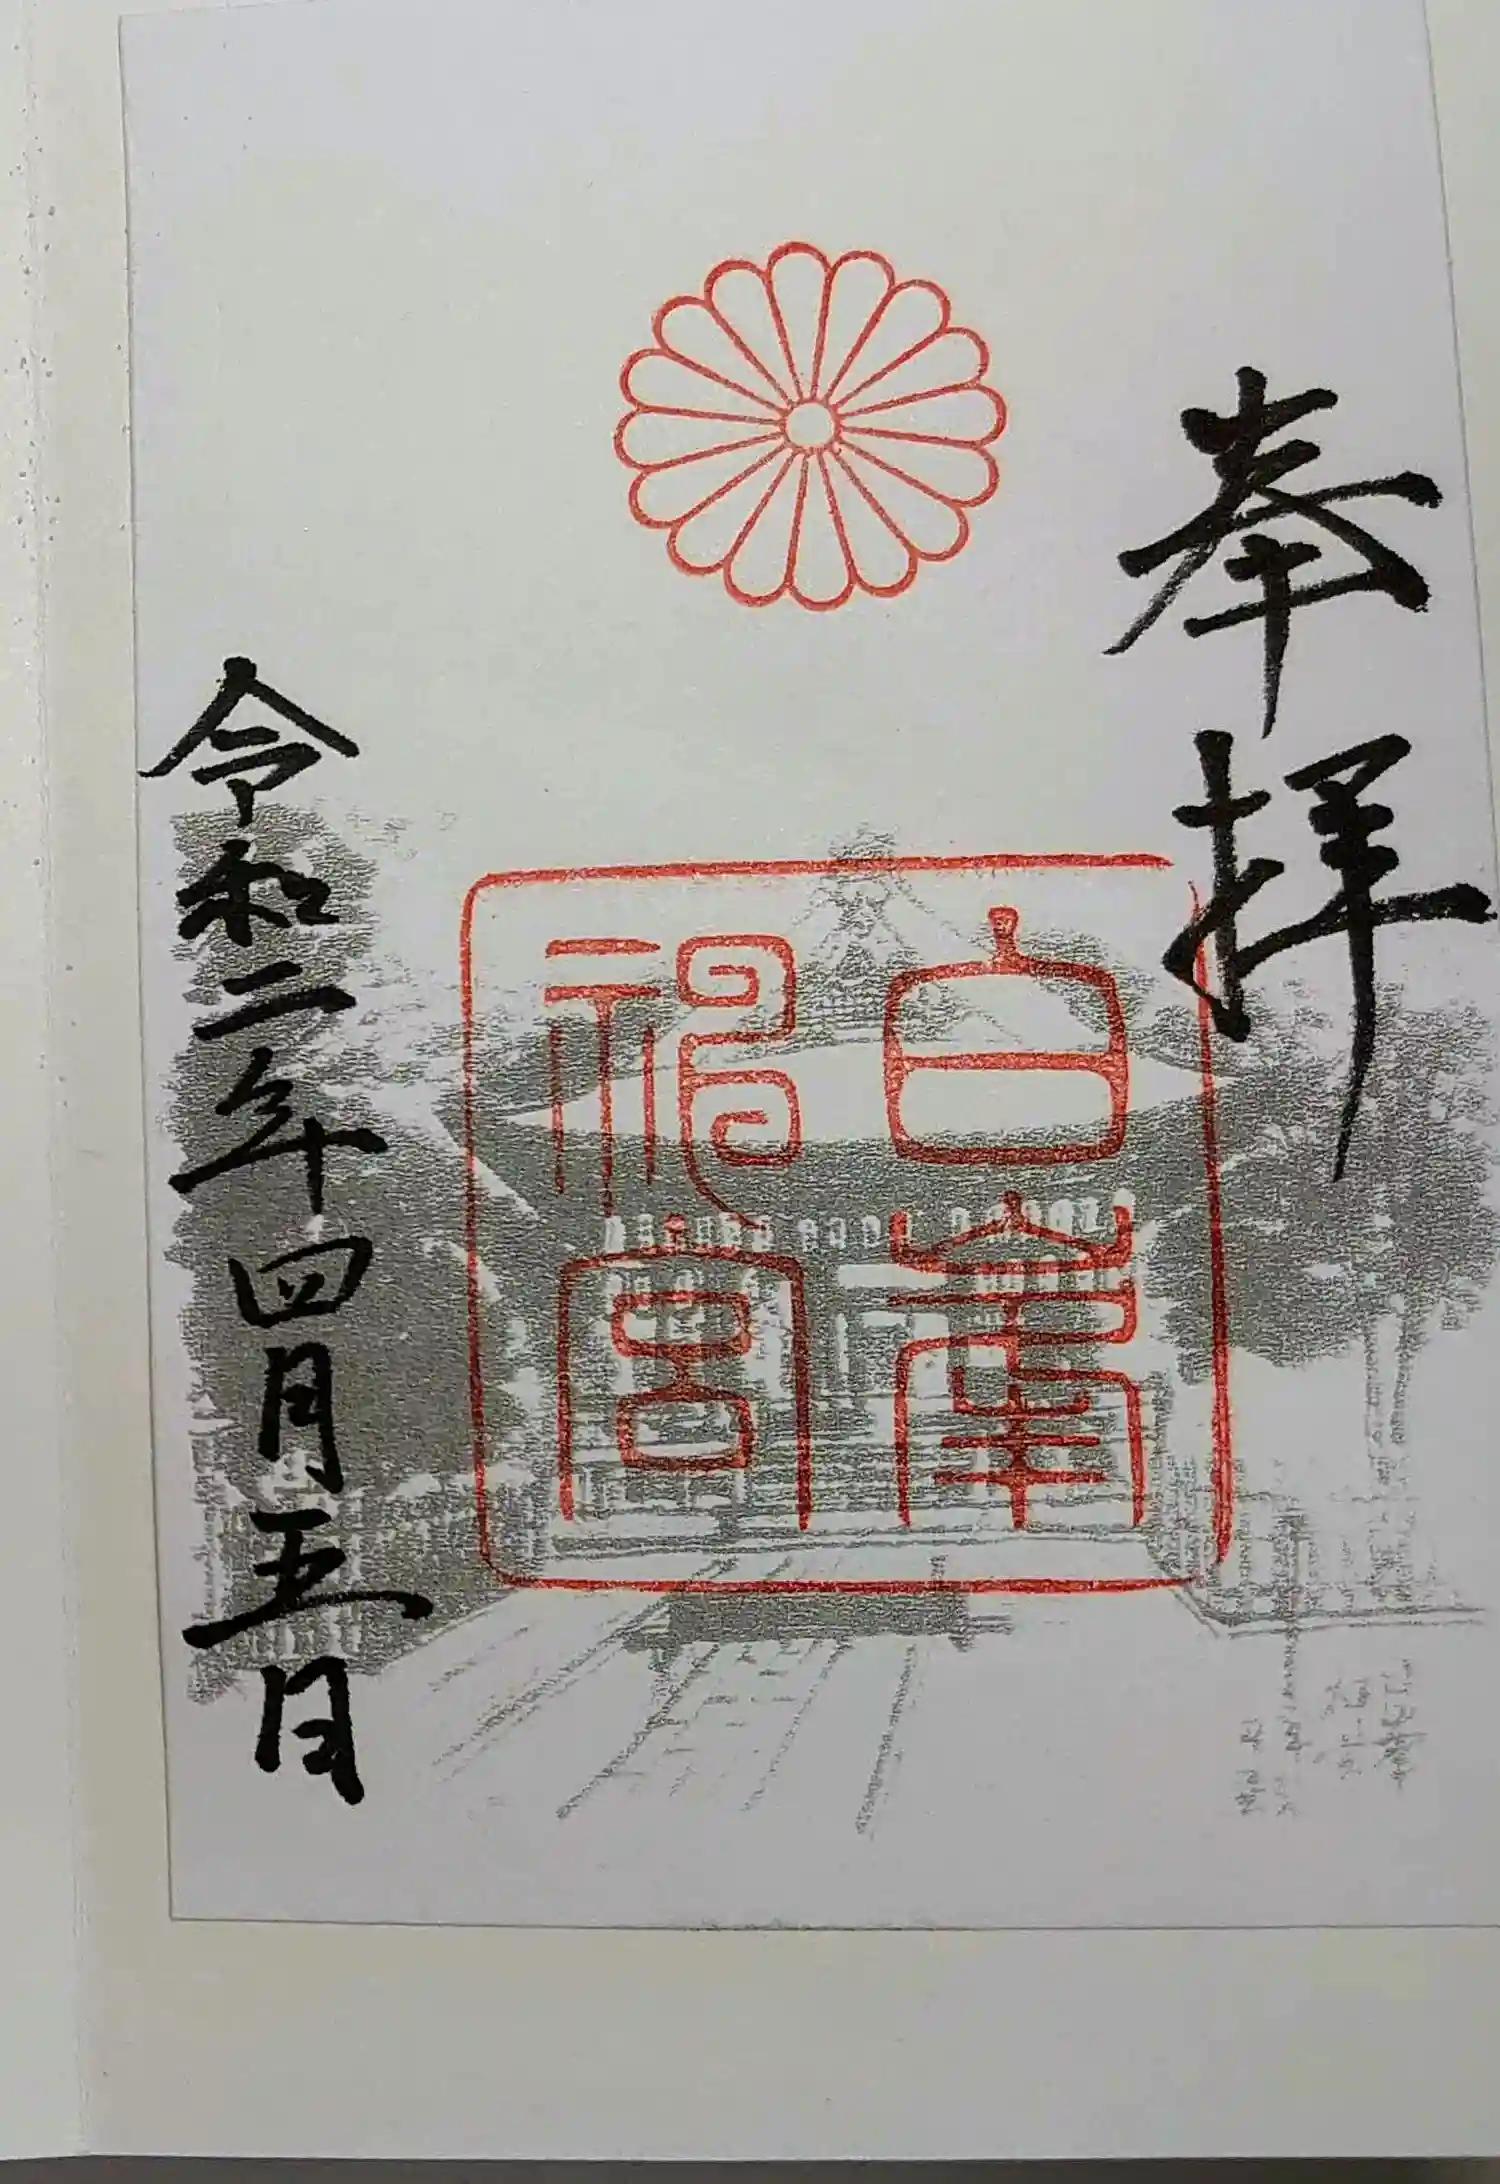 奉拝
白峯
神宮
令和二年四月五日